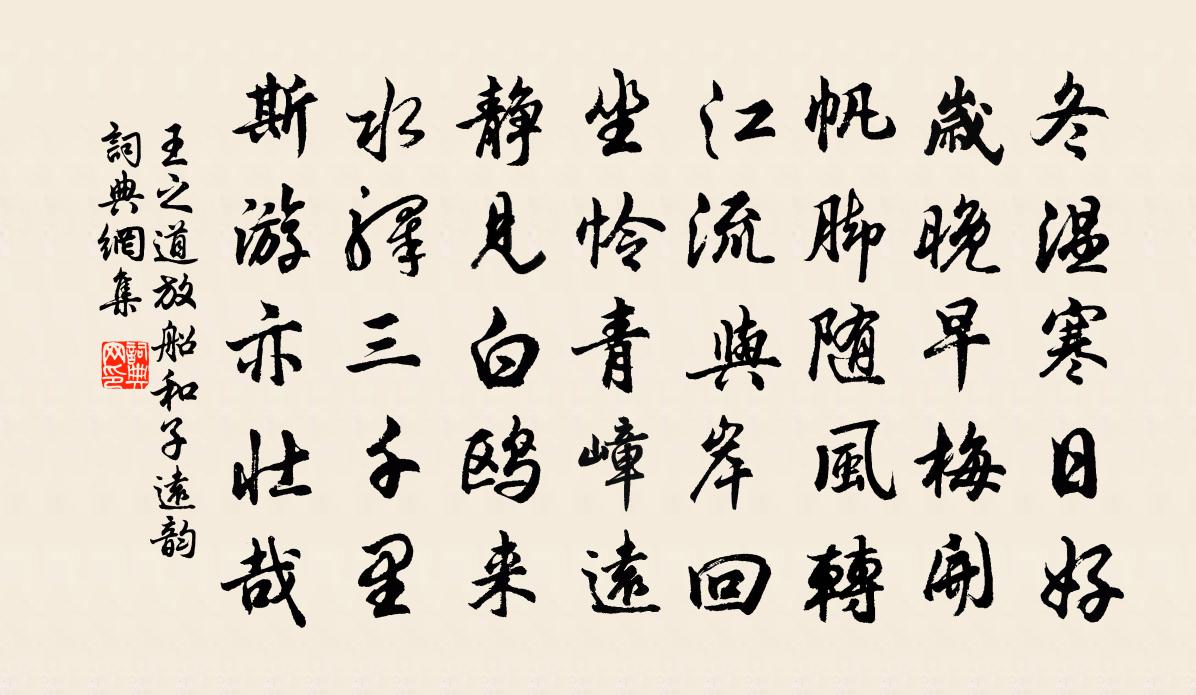 冬温寒日好
歲晚早梅開
帆脚随風轉
江流與岸回
坐怜青嶂遠
静見白鸥来
水驛三千里
斯游亦壮哉
王之道放船和子遠韵
詞典網集
詞典
网印